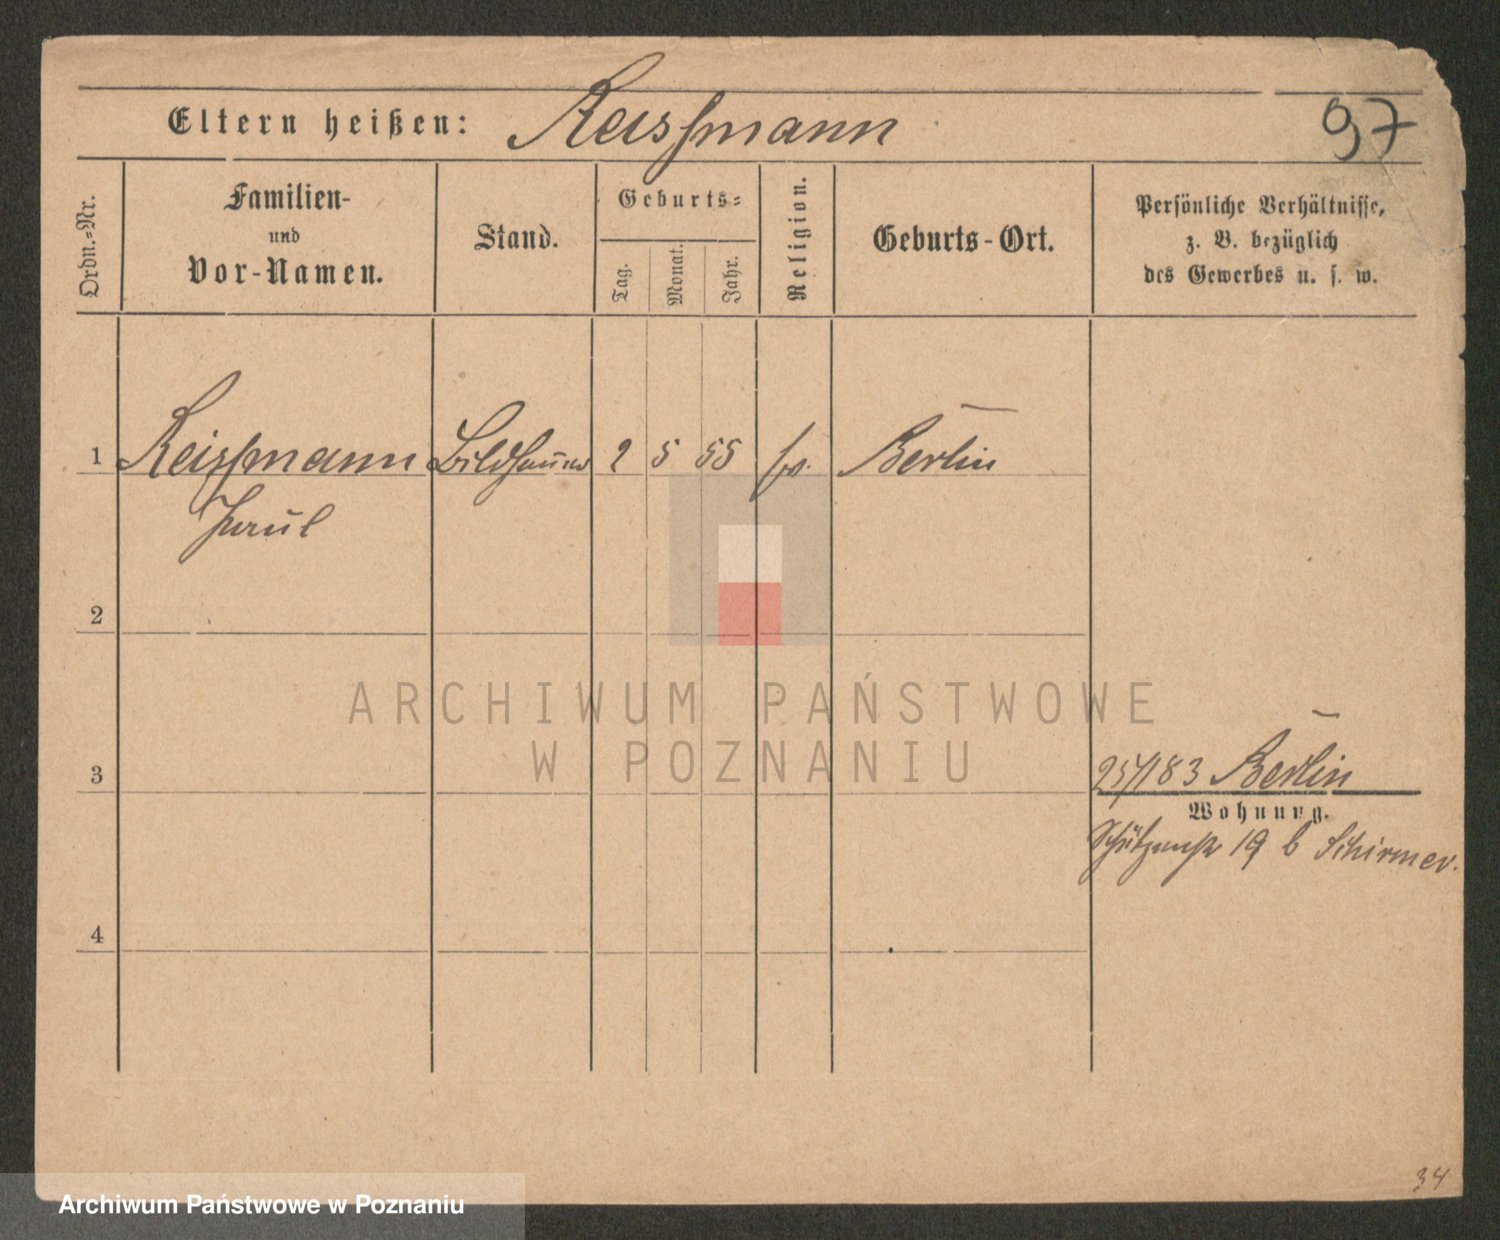 Eltern heißen: Reissmann
97
Ordn.-Nr.
Familien-
und
Vor-Namen.
Stand.
Geburts-
Tag.
Monat.
Jahr.
Religion.
Geburts-Ort.
Persönliche Verhältnisse,
z. B. bezüglich
des Gewerbes u. s. w.
1 Reissmann Bildhauer 2 5 55 Berlin
Paul
2
ARCHIWUM PAŃSTWOWE
W POZNANIU
3
83 Berlin
Wohnung.
Schützenstr 19 b Schirmer.
4
34
Archiwum Państwowe w Poznaniu